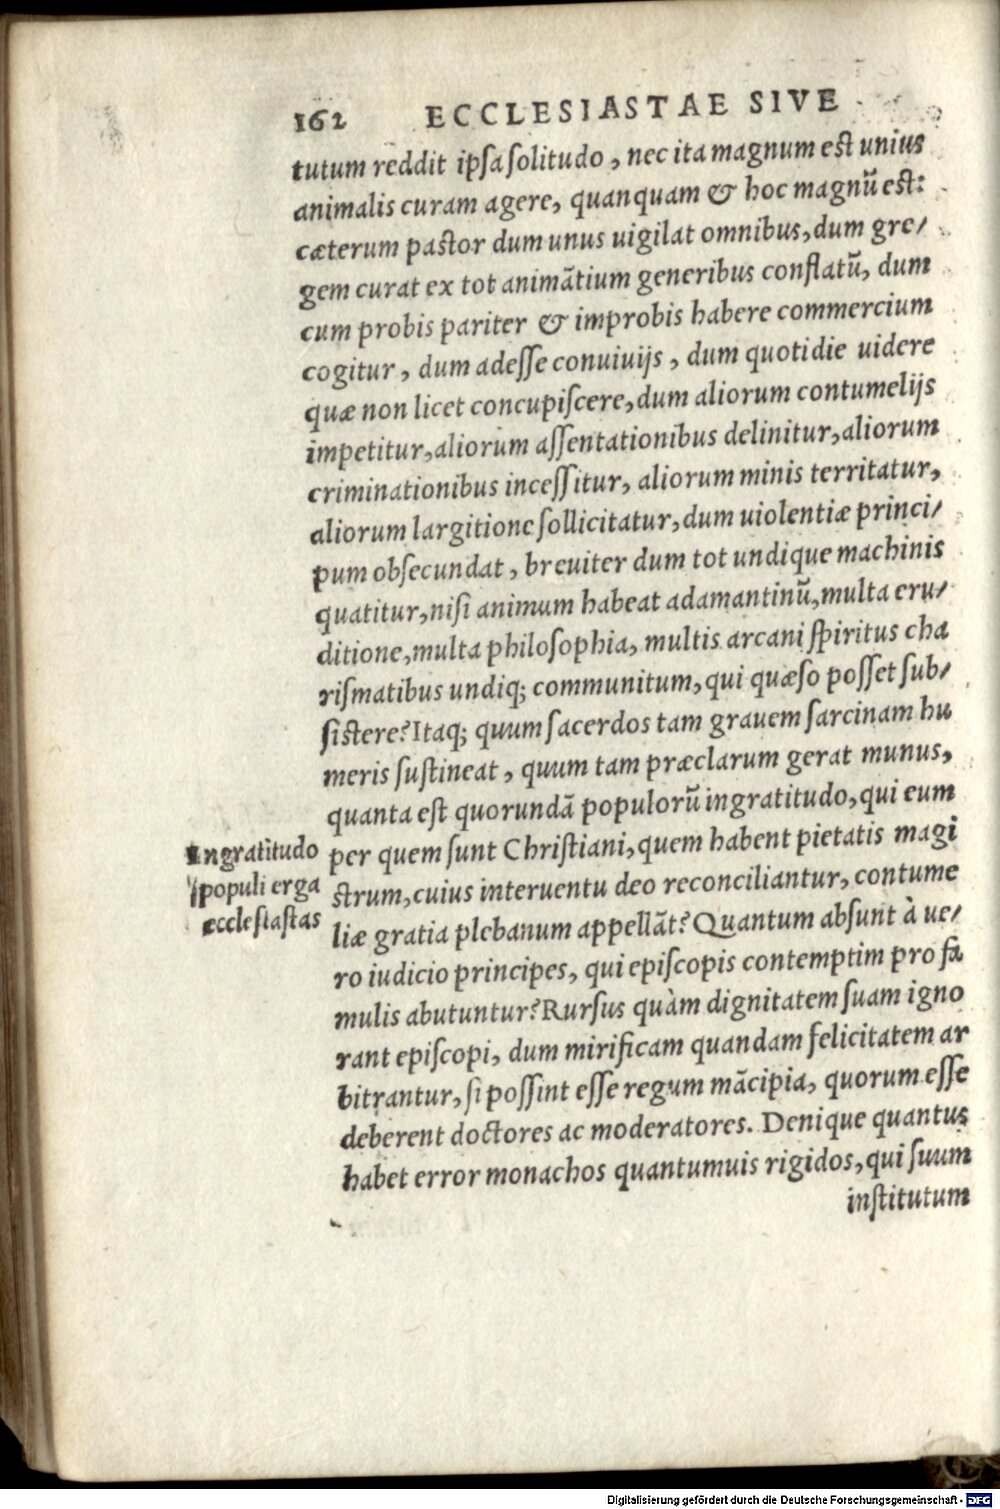 162 ECCLESIASTAE SIVE
tutum reddit ipsa solitudo, nec ita magnum est unius
animalis curam agere, quanquam & hoc magnũ est:
cæterum pastor dum unus uigilat omnibus, dum gre/
gem curat ex tot animãtium generibus conflatũ, dum
cum probis pariter & improbis habere commercium
cogitur, dum adesse conuiuijs, dum quotidie uidere
quæ non licet concupiscere, dum aliorum contumelijs
impetitur, aliorum assentationibus delinitur, aliorum
criminationibus incessitur, aliorum minis territatur,
aliorum largitione sollicitatur, dum uiolentiæ princi/
pum obsecundat, breuiter dum tot undique machinis
quatitur, nisi animum habeat adamantinũ, multa eru/
ditione, multa philosophia, multis arcani spiritus cha
rismatibus undiq; communitum, qui quæso posset sub/
sistere? Itaq; quum sacerdos tam grauem sarcinam hu
meris sustineat, quum tam præclarum gerat munus,
quanta est quorundã populorũ ingratitudo, qui eum
per quem sunt Christiani, quem habent pietatis magi
strum, cuius interuentu deo reconciliantur, contume
liæ gratia plebanum appellãt? Quantum absunt à ue/
ro iudicio principes, qui episcopis contemptim pro fa
mulis abutuntur? Rursus quàm dignitatem suam igno
rant episcopi, dum mirificam quandam felicitatem ar
bitrantur, si possint esse regum mãcipia, quorum esse
deberent doctores ac moderatores. Denique quantus
habet error monachos quantumuis rigidos, qui suum
institutum
Ingratitudo
populi erga
ecclesiastas
Digitalisierung gefördert durch die Deutsche Forschungsgemeinschaft - DFG